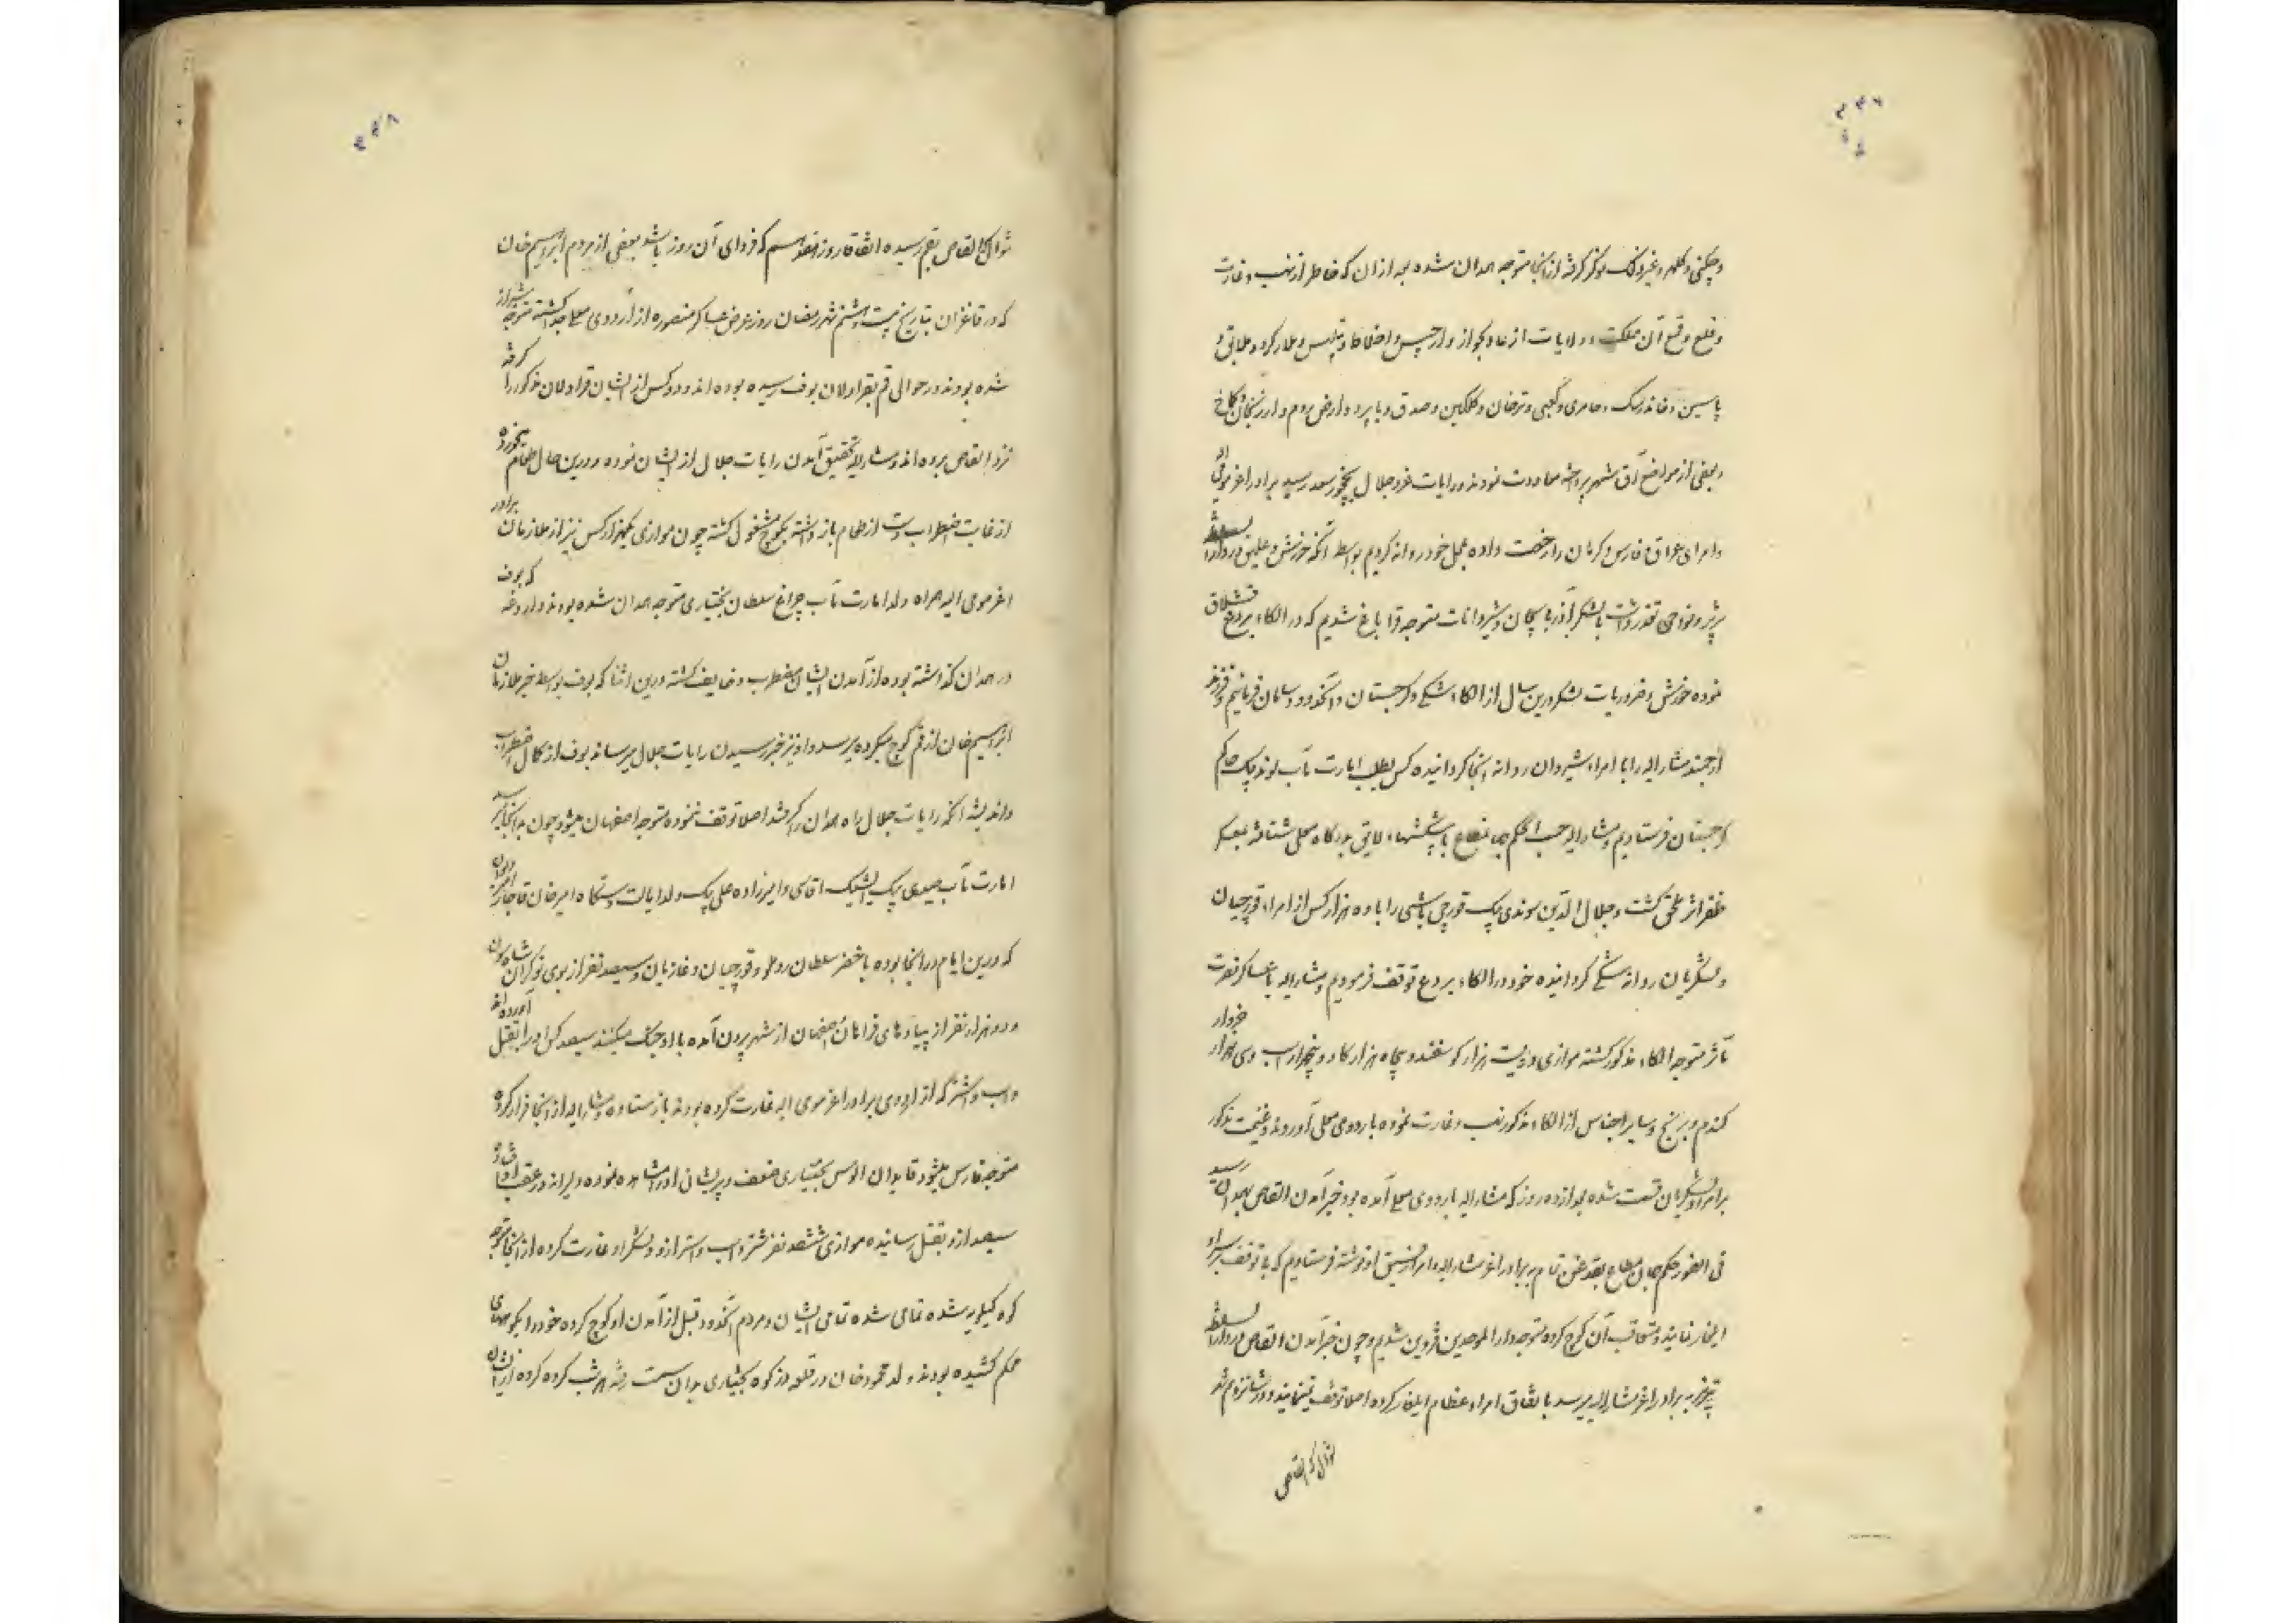 و چکنی و کلهر و غیر ذلک نوکر گرفته از آنجا متوجه همدان شده بعد از آن که خاطر از نهب و غارت
و قلع و قمع آن مملکت و ولایات از عادلجواز و ارجیس و اخلاط و تفلیس و
پاسین و و ترخان و و ارض روم و ارزنجان
و بعضی از مواضع آق شهر پرداخته معاودت نمودند و رایات عز و جلال بنخجور سعد رسید برادر اعز مومی الیه
و امرای عراق و فارس و کرمان را رخصت داده بمحل خود روانه کردیم بواسطه آنکه خورش و علیق در دار السلطنه
تبریز و نواحی تعذر داشت با لشکر آذربایجان و شیروانات متوجه قراباغ شدیم که در الکاء بردع قشلاق
نموده خورش و ضروریات لشکر درین سال از الکاء شکی و گرجستان و آنحدود سامان فرمائیم و فرزند
ارجمند مشار الیه را با امراء شیروان روانه آنجا گردانیده کس بطلب امارت مآب لوند بیک حاکم
گرجستان فرستادیم و مشار الیه حسب الحکم جهانمطاع با پیشکشهاء لایق بدرگاه معلی شتافته بعسکر
ظفر اثر ملحق گشت و جلال الدین سوندک بیک قورچی باشی را با ده هزار کس از امراء و قورچیان
و لشکریان روانه شکی گردانیده خود در الکاء بردع توقف فرمودیم و مشار الیه با عساکر نصرت
مآثر متوجه الکاء مذکور گشته موازی دویست هزار گوسفند و پنجاه هزار گاو و پنجهزار اسب و سی هزار خروار
گندم و برنج و سایر اجناس از الکاء مذکور نهب و غارت نموده باردوی معلی آوردند و غنیمت مذکور
بر امراء و لشکریان قسمت شده بعد از ده روز که مشار الیه باردوی معلی آمده بود خبر آمدن القاص بهمدان رسید
فی الفور حکم جهان مطاع بقدغن تمام ببرادر اعز مشار الیه و امراء نوشته فرستادیم که بی توقف بر سر او
ایلغار نمایند و متعاقب آن کوچ کرده متوجه دار الموحدین قزوین شدیم و چون خبر آمدن القاص در دار السلطنه
تبریز به برادر اعز مشار الیه میرسد باتفاق امراء عظام ایلغار کرده اصلا توقف نمینمایند و در شانزدهم شهر
شوال که القاص
۴۵۸
شوال که القاص بقم رسیده اتفاقا روز هفدهم که فردای آن روز باشد بعضی از مردم ابراهیم خان
که در قاغزان بتاریخ بیست و هشتم شهر رمضان روز عرض عساکر منصوره از اردوی معلی جدا گشته متوجه شیراز
شده بودند در حوالی قم بقراولان بوف رسیده بوده اند و دو کس از ایشان قراولان مذکور را گرفته
نزد القاص برده اند و مشار الیه تحقیق آمدن رایات جلال از ایشان نموده درین حال طعام میخورده
از غایت اضطراب دست از طعام باز داشته بکوچ مشغول گشته چون موازی یکهزار کس نیز از ملازمان برادر
اعز مومی الیه همراه ولد امارت مآب چراغ سلطان بختیاری متوجه همدان شده بودند و داروغه که بوف
در همدان گذاشته بوده از آمدن ایشان مضطرب و خایف گشته درین اثنا که بوف بواسطه خبر ملازمان
ابراهیم خان از قم کوچ میکرده میرسد و او نیز خبر رسیدن رایات جلال میرساند بوف از کمال اضطراب
و اندیشه آنکه رایات جلال راه همدان را گرفته باشد اصلا توقف ننموده متوجه اصفهان میشود چون بدانجا میرسد
امارت مآب عیسی بیک ایشیک اقاسی و امیرزاده علی بیک ولد ایالت دستگاه امیر خان قاجار
که درین ایام در آنجا بوده با خضر سلطان روملو و قورچیان و غازیان و سیصد نفر از نوکران شاه
و دو هزار نفر از پیادهای فراهان اصفهان از شهر بیرون آمده با او جنگ میکنند سیصد کس او را بقتل آورده اند
و اسب و اشتر که از اردوی برادر اعز مومی الیه غارت کرده بودند باز ستاده و مشار الیه از آنجا فرار کرده
متوجه فارس میشود قایدان الوس بختیاری ضعف و پریشانی او را مشاهده نموده دلیرانه در عقب او افتاده
سیصد از او بقتل رسانیده موازی ششصد نفر شتر و اسب و استر از او و لشکر او غارت کرده از آنجا متوجه
کوه کیلویه شده تمامی شده تمامی ایشان و مردم آنحدود قبل از آمدن او کوچ کرده خود را بکوههای
محکم کشیده بودند ولد محمود خان در قلعه دز کوه بختیاری بدان سمت رفته هر شب گروه گروه از ایشان